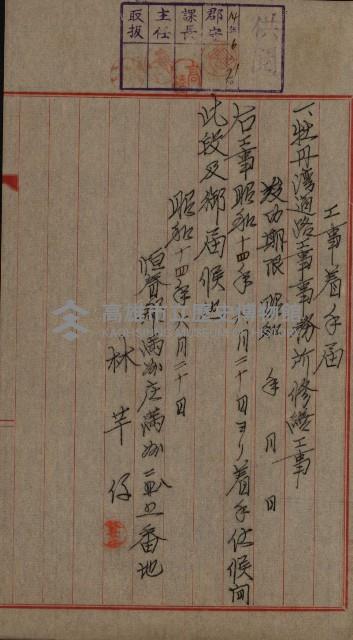 供閱
14.6.21
郡守
課長
主任
取扱
工事着手届
一、牡丹湾道路工事事務所修繕工事
竣功期限 昭和 年 月 日
右工事昭和十四年六月二十日ヨリ着手仕候間
此段及御届候也
昭和十四年六月二十日
恒春郡満州庄満州 番地
林芋仔
高雄市立歷史博物館